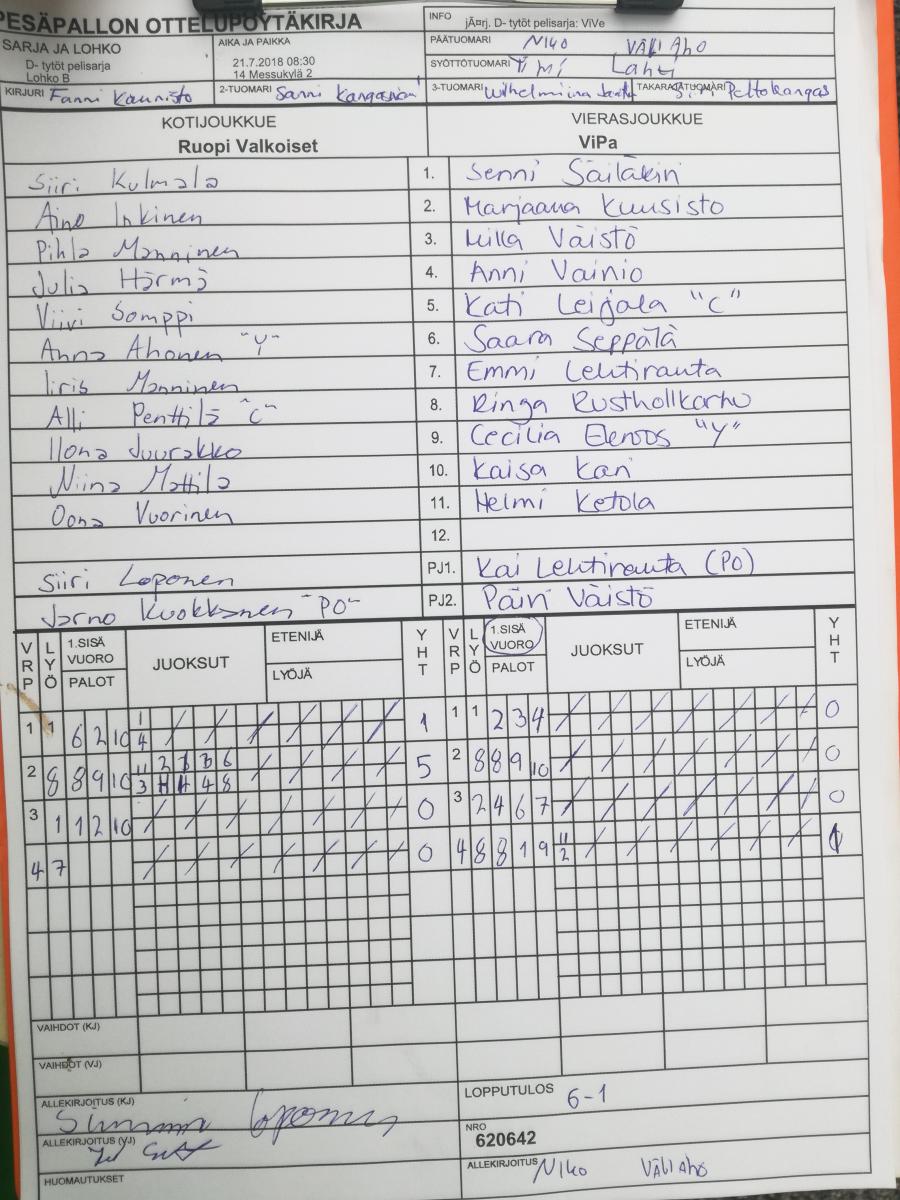 PESÄPALLON OTTELUPÖYTÄKIRJA
INFO jÃ¤rj. D- tytöt pelisarja: ViVe
SARJA JA LOHKO
D- tytöt pelisarja
Lohko B
AIKA JA PAIKKA
21.7.2018 08:30
14 Messukylä 2
PÄÄTUOMARI Niko Väliaho
SYÖTTÖTUOMARI Timi Lahti
KIRJURI Fanni Kaunisto
2-TUOMARI Sanni
3-TUOMARI Wilhelmiina
TAKARAJATUOMARI Peltokangas
KOTIJOUKKUE
Ruopi Valkoiset
VIERASJOUKKUE
ViPa
Siiri Kulmala 1. Senni Säiläkivi
Aino Inkinen 2. Marjaana Kuusisto
Pihla Manninen 3. Milla Väistö
Julia Härmä 4. Anni Vainio
Viivi Somppi 5. Kati Leijala "C"
Anna Ahonen "Y" 6. Saara Seppälä
Iiris Manninen 7. Emmi Lehtiranta
Alli Penttilä "C" 8. Ringa Rusthollkarhu
Ilona Juurakko 9. Cecilia Elenos "Y"
Niina Mattila 10. Kaisa Kari
Oona Vuorinen 11. Helmi Ketola
12.
Siiri Loponen PJ1. Kai Lehtiranta (PO)
Jarno Kuokkanen "PO" PJ2. Päivi Väistö
VRP LYÖ 1.SISÄ VUORO PALOT JUOKSUT ETENIJÄ LYÖJÄ YHT VRP LYÖ 1.SISÄ VUORO PALOT JUOKSUT ETENIJÄ LYÖJÄ YHT
1 1 6 2 10 1 4 1 1 1 2 3 4 0
2 8 8 9 10 5 2 8 8 9 10 0
3 1 1 2 10 0 3 2 4 6 7 0
4 7 0 4 8 8 1 9 11 2 1
VAIHDOT (KJ)
VAIHDOT (VJ)
ALLEKIRJOITUS (KJ) Loponen
LOPPUTULOS 6-1
ALLEKIRJOITUS (VJ)
NRO
620642
HUOMAUTUKSET
ALLEKIRJOITUS Niko Väliaho